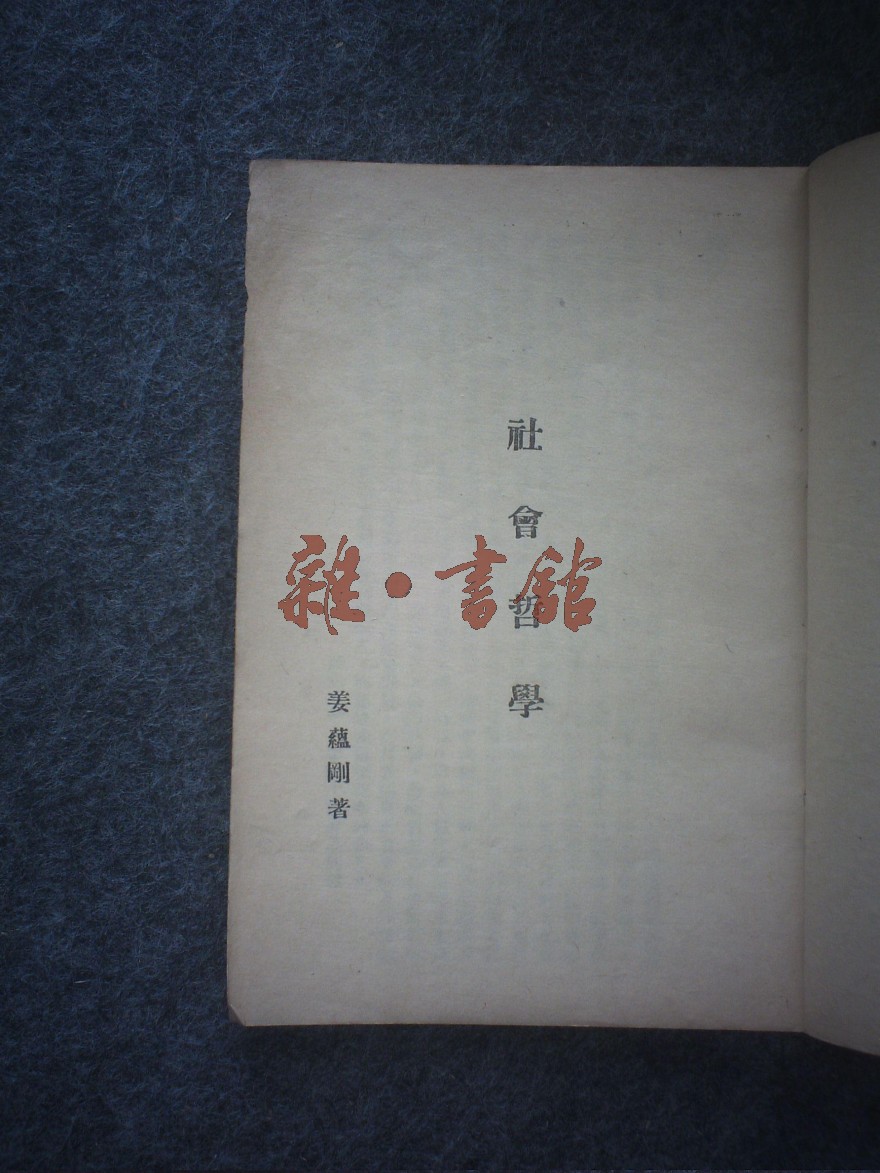 社會哲學
姜蘊剛著
雜·書館